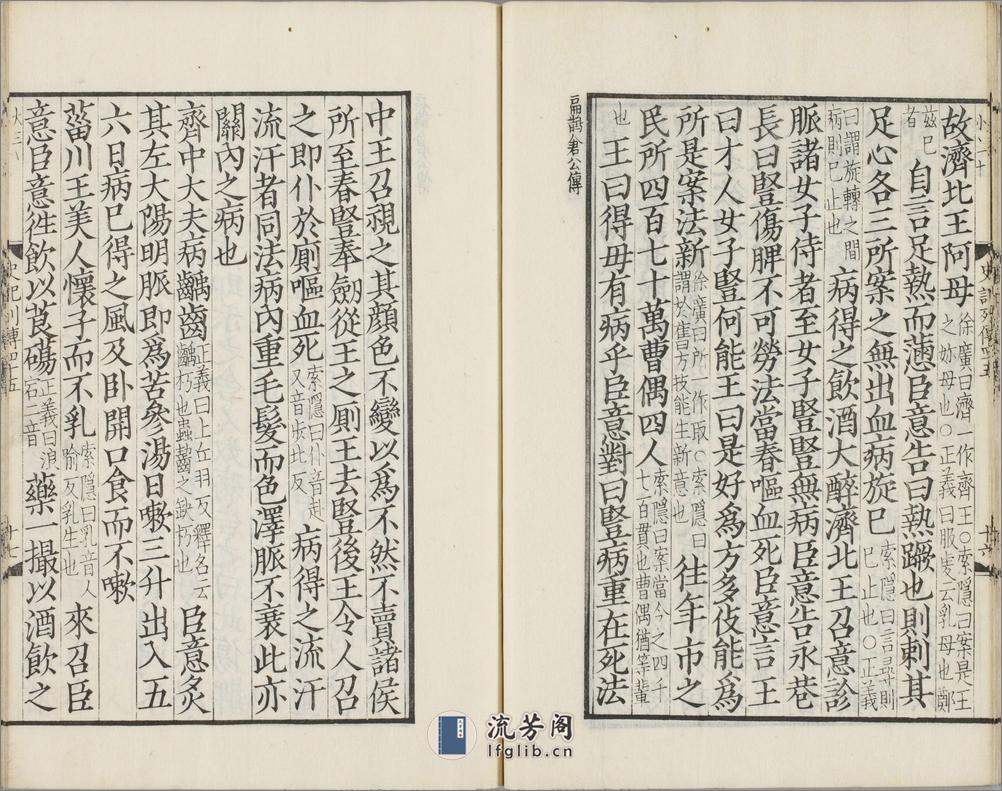 故濟北王阿母徐廣曰濟一作齊王○索隱曰案是王之妳母也○正義曰服虔云乳母也鄭
茲巳者自言足熱而懣臣意告曰熱蹶也則刺其
足心各三所案之無出血病旋巳索隱曰言尋則巳止也○正義
曰謂旋轉之間病則巳止也病得之飲酒大醉濟北王召意診
脈諸女子侍者至女子豎豎無病臣意告永巷
長曰豎傷脾不可勞法當春嘔血死臣意言王
曰才人女子豎何能王曰是好爲方多伎能爲
所是案法新徐廣曰所一作取○索隱曰謂於舊方技能生新意也往年市之
民所四百七十萬曹偶四人索隱曰案當今之四千七百貫也曹偶猶等輩
也王曰得毋有病乎臣意對曰豎病重在死法
扁鵲倉公傳
史記列傳四十五
十六
中王召視之其顔色不變以爲不然不賣諸侯
所至春豎奉劒從王之厠王去豎後王令人召
之即仆於廁嘔血死索隱曰仆音赴又音步北反病得之流汗
流汗者同法病內重毛髮而色澤脈不衰此亦
關內之病也
齊中大夫病齲齒正義曰上丘羽反釋名云齲朽也蟲齧之缺朽也臣意灸
其左大陽明脈即爲苦參湯日嗽三升出入五
六日病巳得之風及卧開口食而不嗽
菑川王美人懷子而不乳索隱曰乳音人喻反乳生也來召臣
意臣意徃飲以莨䓪正義曰浪宕二音藥一撮以酒飲之
史記列傳四十五
十七
流芳阁
lfglib.cn